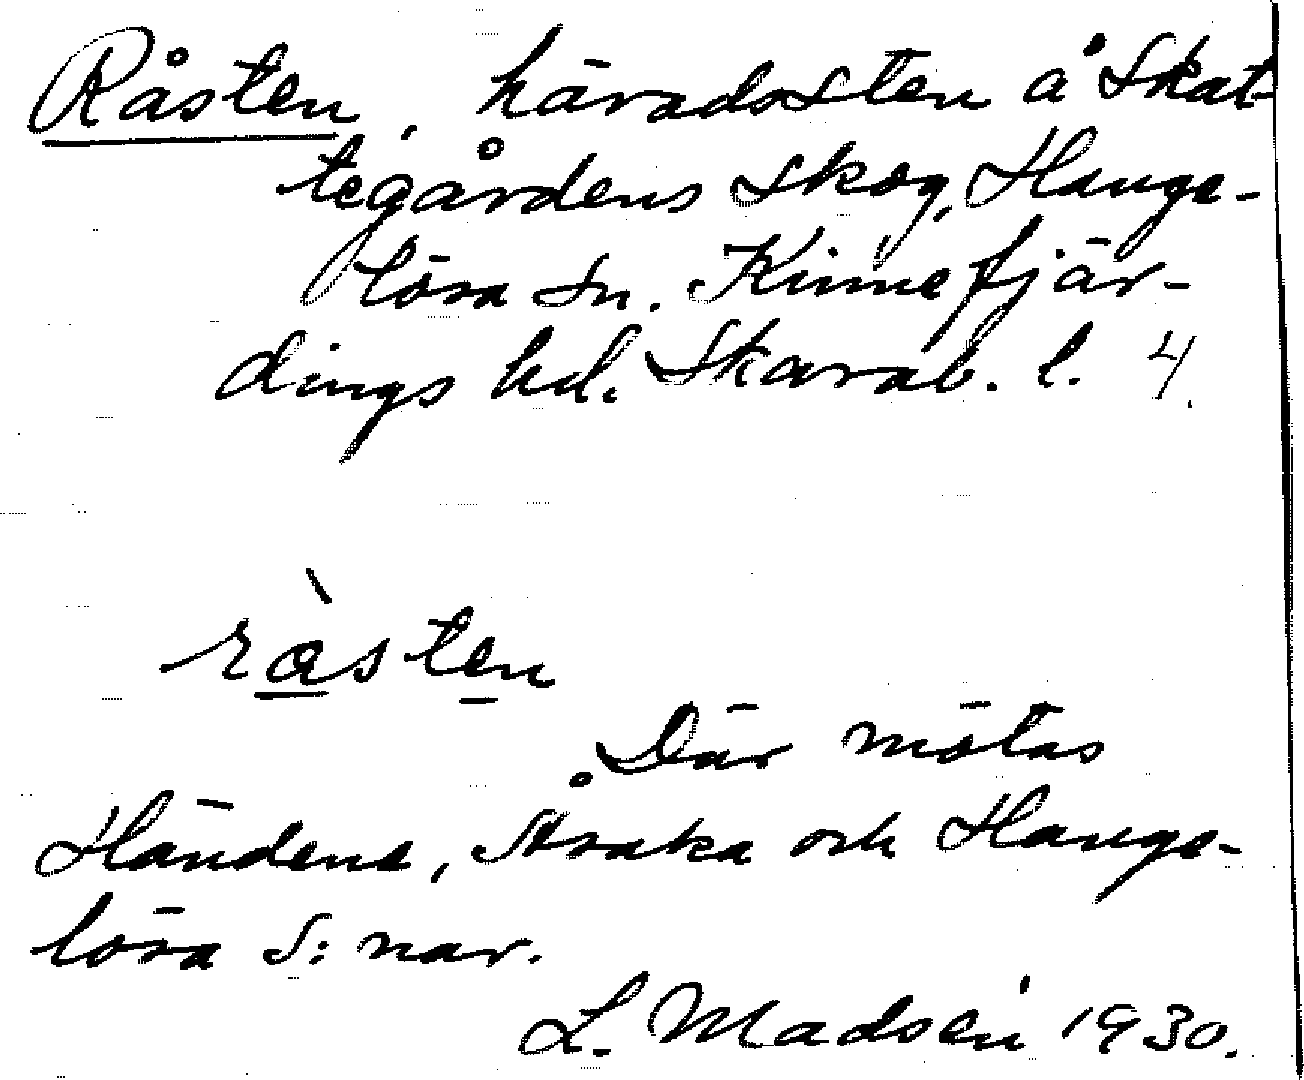 Råsten, häradssten å Skat-
tegårdens skog, Hange-
lösa sn. Kinnefjär-
dings hd. Skarab. l. 4.
ràsten
Där mötas
Händene, Åsaka och Hange-
lösa s:nar.
L. Madsén 1930.